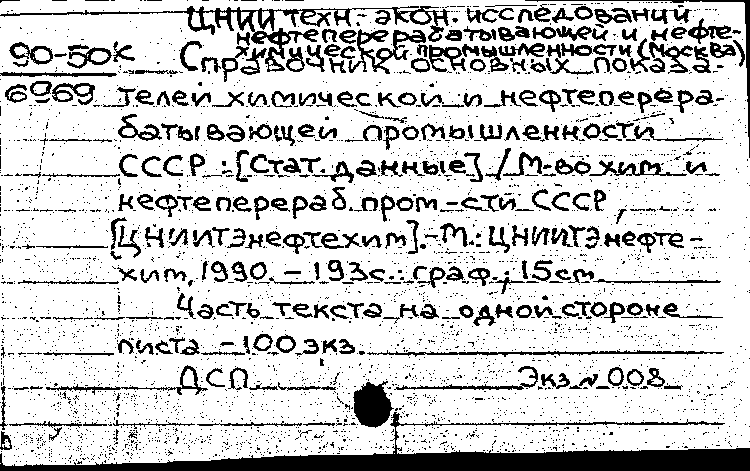 ЦНИИ техн.-экон. исследований
нефтеперерабатывающей и нефте-
химической промышленности (Москва)
90-50К
Справочник основных показа-
6969
телей химической и нефтеперера-
батывающей промышленности
СССР : [Стат. данные] / М-во хим. и
нефтеперераб. пром-сти СССР,
[ЦНИИТЭнефтехим].-М.: ЦНИИТЭнефте-
хим, 1990. - 193с.: граф.; 15cm.
Часть текста на одной стороне
листа - 100 экз.
ДСП
Экз. № 008